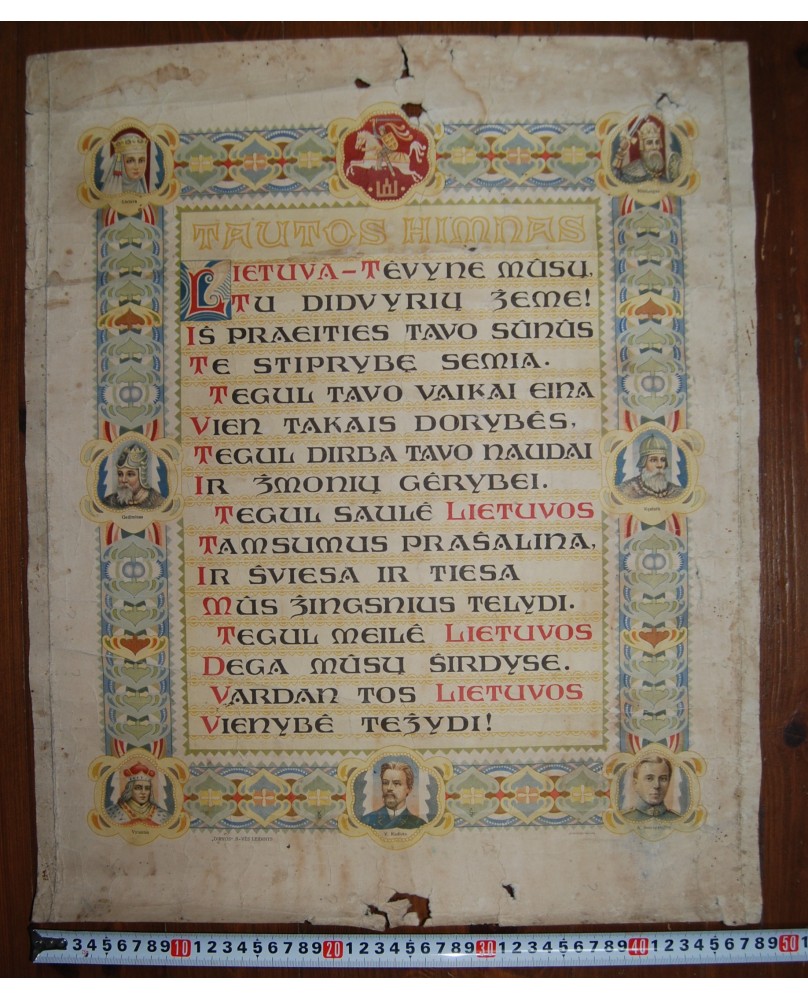 TAUTOS HIMNAS
LIETUVA–TĖVYNE MŪSŲ,
TU DIDVYRIŲ ŽEME!
IŠ PRAEITIES TAVO SŪNŪS
TE STIPRYBĘ SEMIA.
TEGUL TAVO VAIKAI EINA
VIEN TAKAIS DORYBĖS,
TEGUL DIRBA TAVO NAUDAI
IR ŽMONIŲ GĖRYBEI.
TEGUL SAULĖ LIETUVOS
TAMSUMUS PRAŠALINA,
IR ŠVIESA IR TIESA
MŪS ŽINGSNIUS TELYDI.
TEGUL MEILĖ LIETUVOS
DEGA MŪSŲ ŠIRDYSE.
VARDAN TOS LIETUVOS
VIENYBĖ TEŽYDI!
Gediminas
V. Kudirka
3 4 5 6 7 8 9 10 1 2 3 4 5 6 7 8 9 20 1 2 3 4 5 6 7 8 9 30 1 2 3 4 5 6 7 8 9 40 1 2 3 4 5 6 7 8 9 50 1